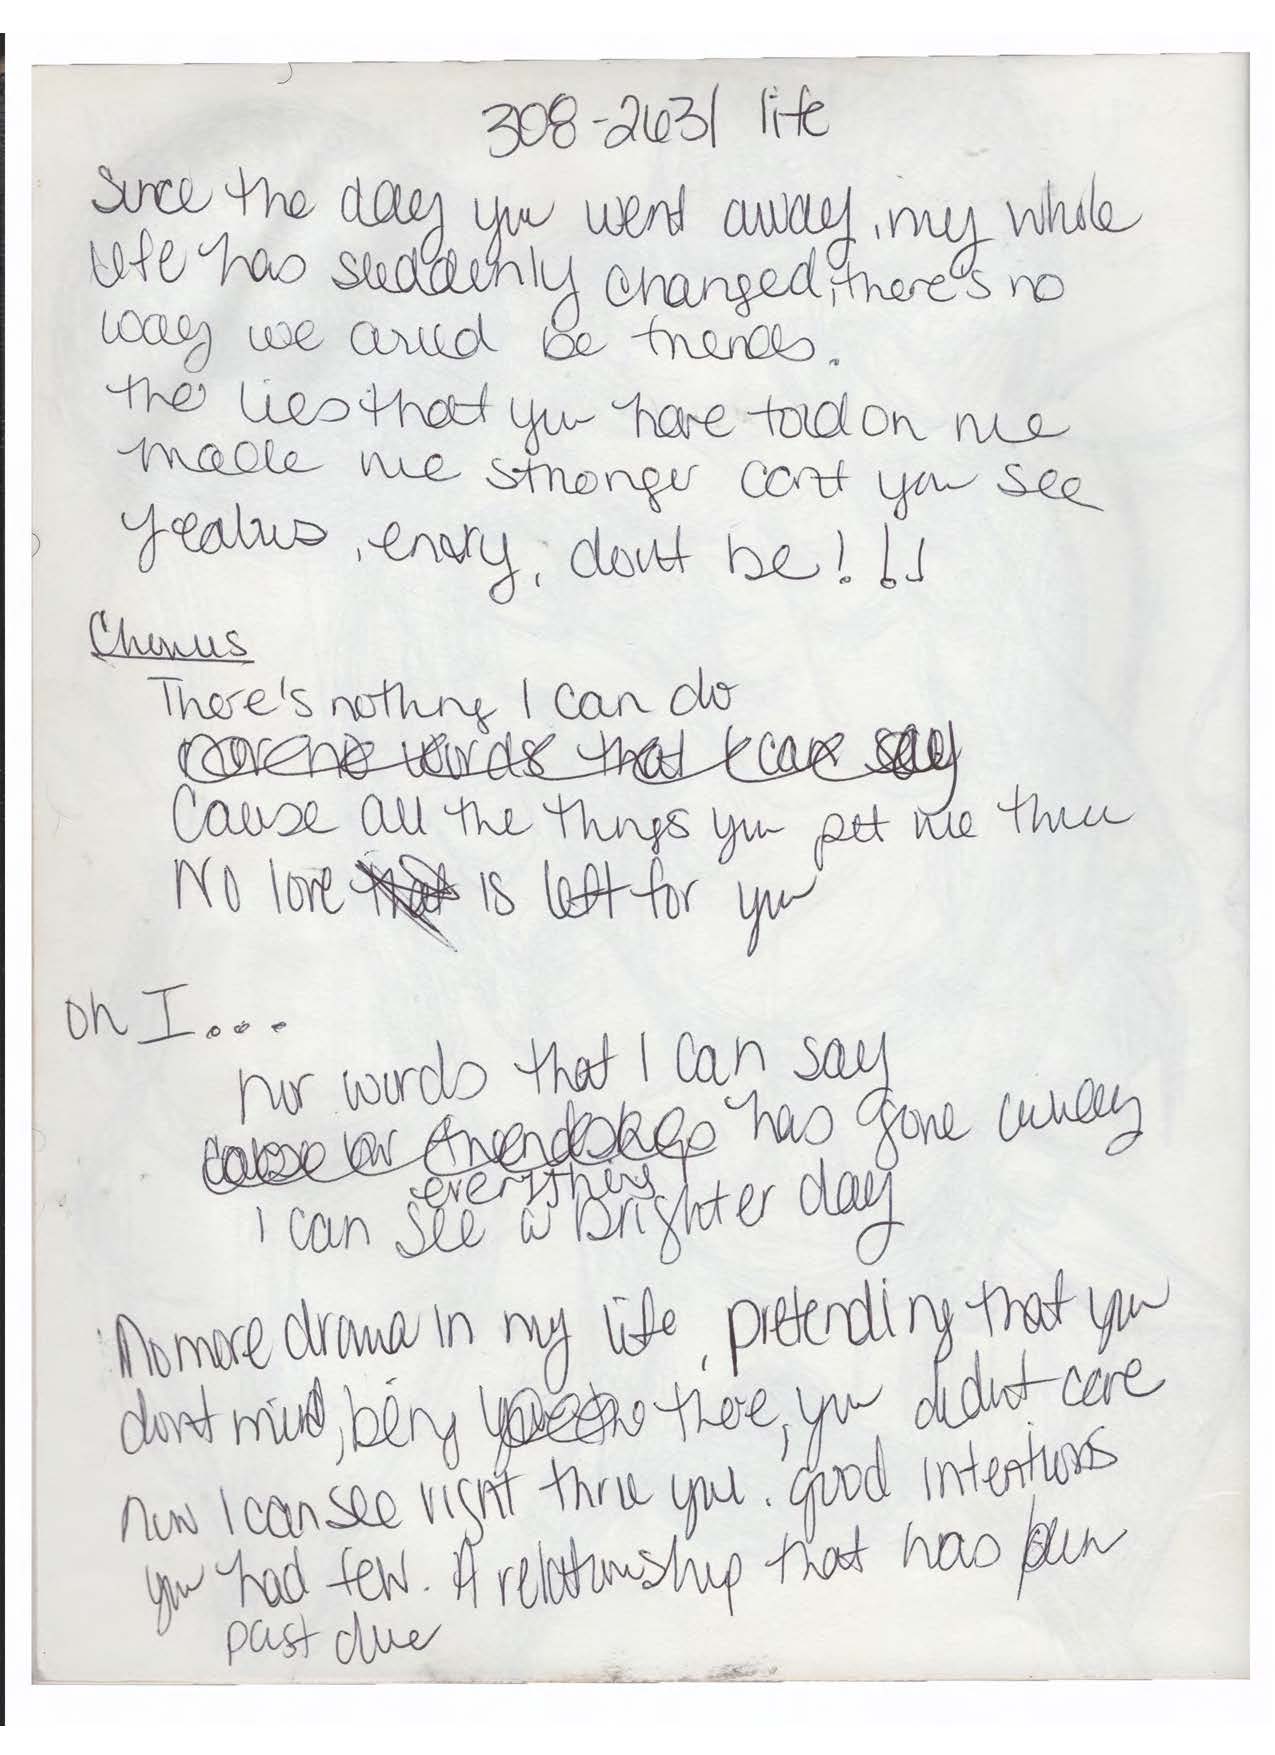 308-2631 life
Since the day you went away, my whole
life has suddenly changed, there's no
way we could be friends.
the lies that you have told on me
made me stronger can't you see
Jealous, envy, don't be!!!
Chorus
There's nothing I can do
nor words that I can say
Cause all the things you put me thru
No love that is left for you
oh I...
nor words that I can say
cause our friendship has gone away
everything
I can see a brighter day
No more drama in my life, pretending that you
don't mind, being there, you didn't care
now I can see right thru you. good intentions
you had few. A relationship that has been
past due